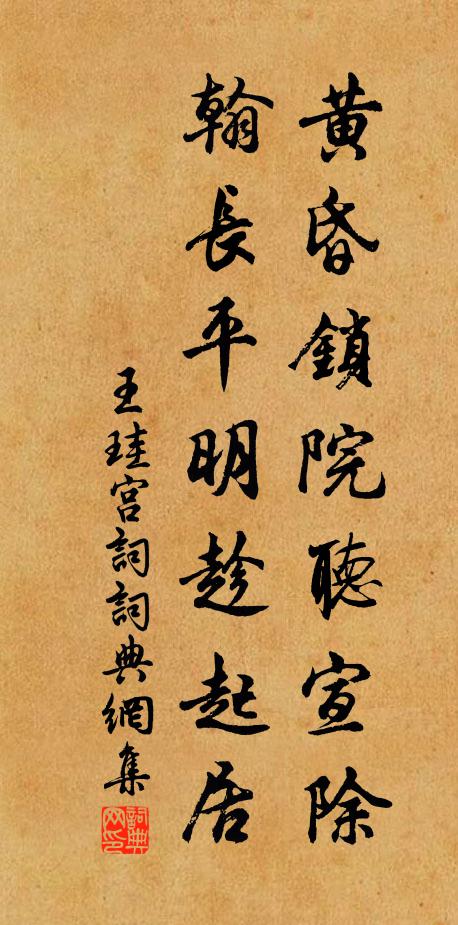 黄昏鎖院聽宣除
翰長平明趁起居
王珪宫詞詞典網集
詞典网印